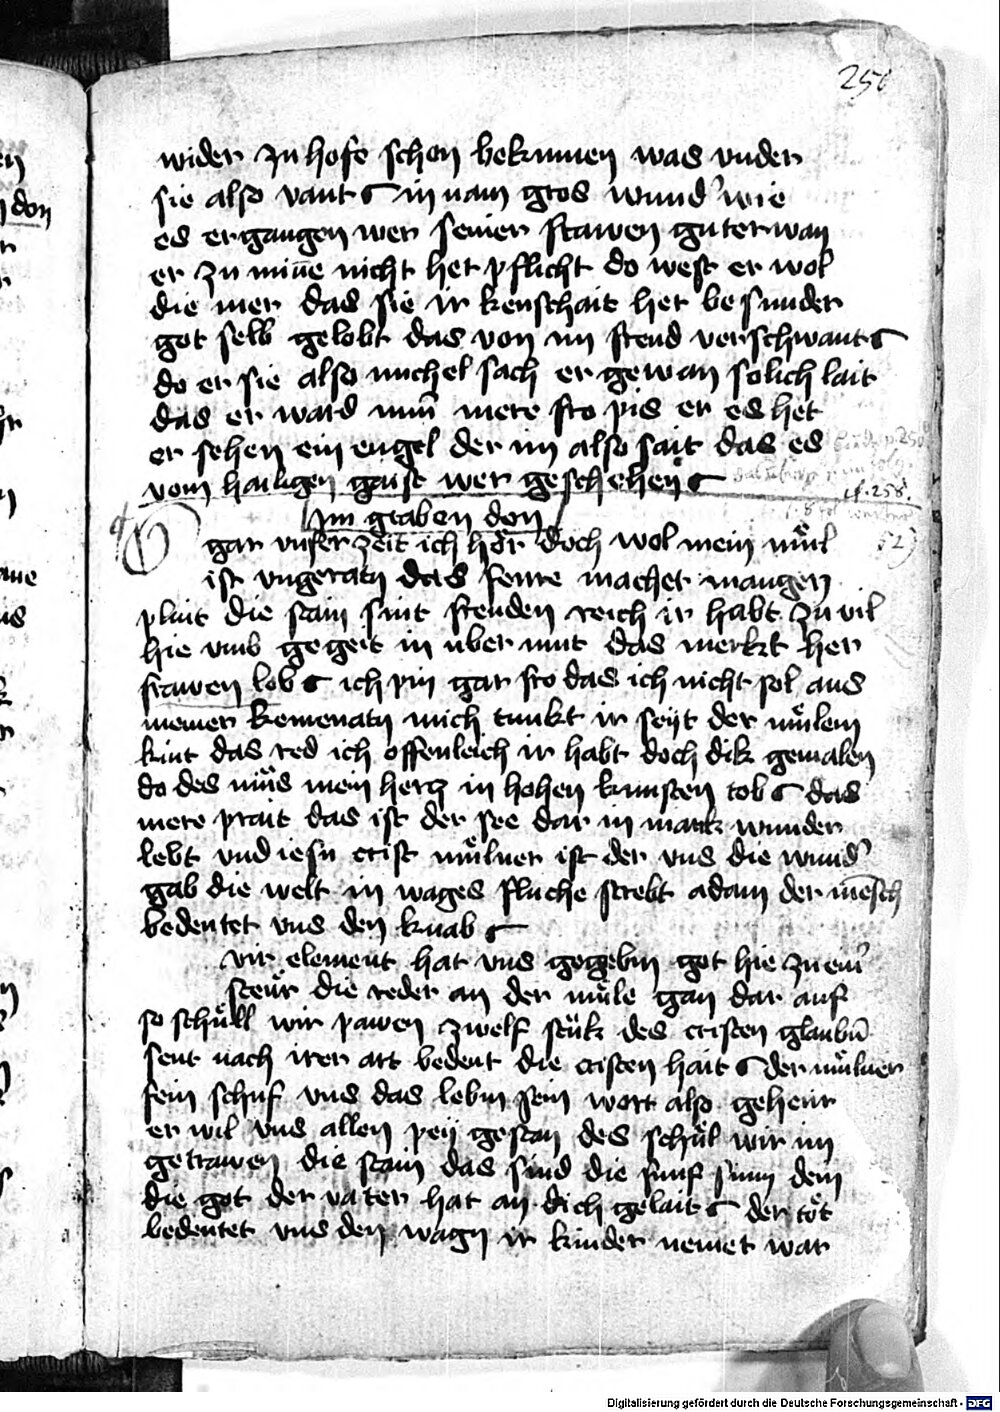 250
wider zu hofe schon bekumen was vnder
sie also vant in nam gros wund' wie
es ergangen wer seiner frawen guter wan
er zu miñe nicht het pflicht do west er wol
die mer das sie ir keuschait het besunder
got selb gelobt das von im freud verschwant
do er sie also michel sach er gewan solich lait
das er ward nim̄ mere fro pis er es het
er sehen ein engel der im also sait das es
vom hailigen gaist wer geschehen
Im graben don
gar vnser zeit ich hör doch wol mein mül
ist vngeratn das sewre machet mangen
plait die stain sint freuden reich ir habt zu vil
hie vmb gegert in uber mut das merkt her
frawen lob ich pin gar fro das ich nicht sol aus
meiner kemenatn mich tunkt ir seyt der mülein
kint das red ich offenleich ir habt doch dik gemalen
do des müs mein hercz in hohen kunsten tob das
mere prait das ist der see dar in mank wunder
lebt vnd iesu crist mülner ist der vns die wund'
gab die welt in wages fluche strebt adam der mēsch
bedeutet vns den knab
vir element hat vns gegebn got hie zu eim'
steür die reder an der müle gan dar auf
so schüll wir pawen zwelf stük des cristen glaubn̄
sent nach irer art bedeut die cristen hait der mülner
sein schuf vns das lebn sein wort also geheur
er wil vns allen pey gestan des schül wir im
getrawen die stain das sind die funf sinn dein
die got der vater hat an dich gelait der töt
bedeutet vns den wagn ir kinder nemet war
cf. 258.
Digitalisierung gefördert durch die Deutsche Forschungsgemeinschaft - DFG